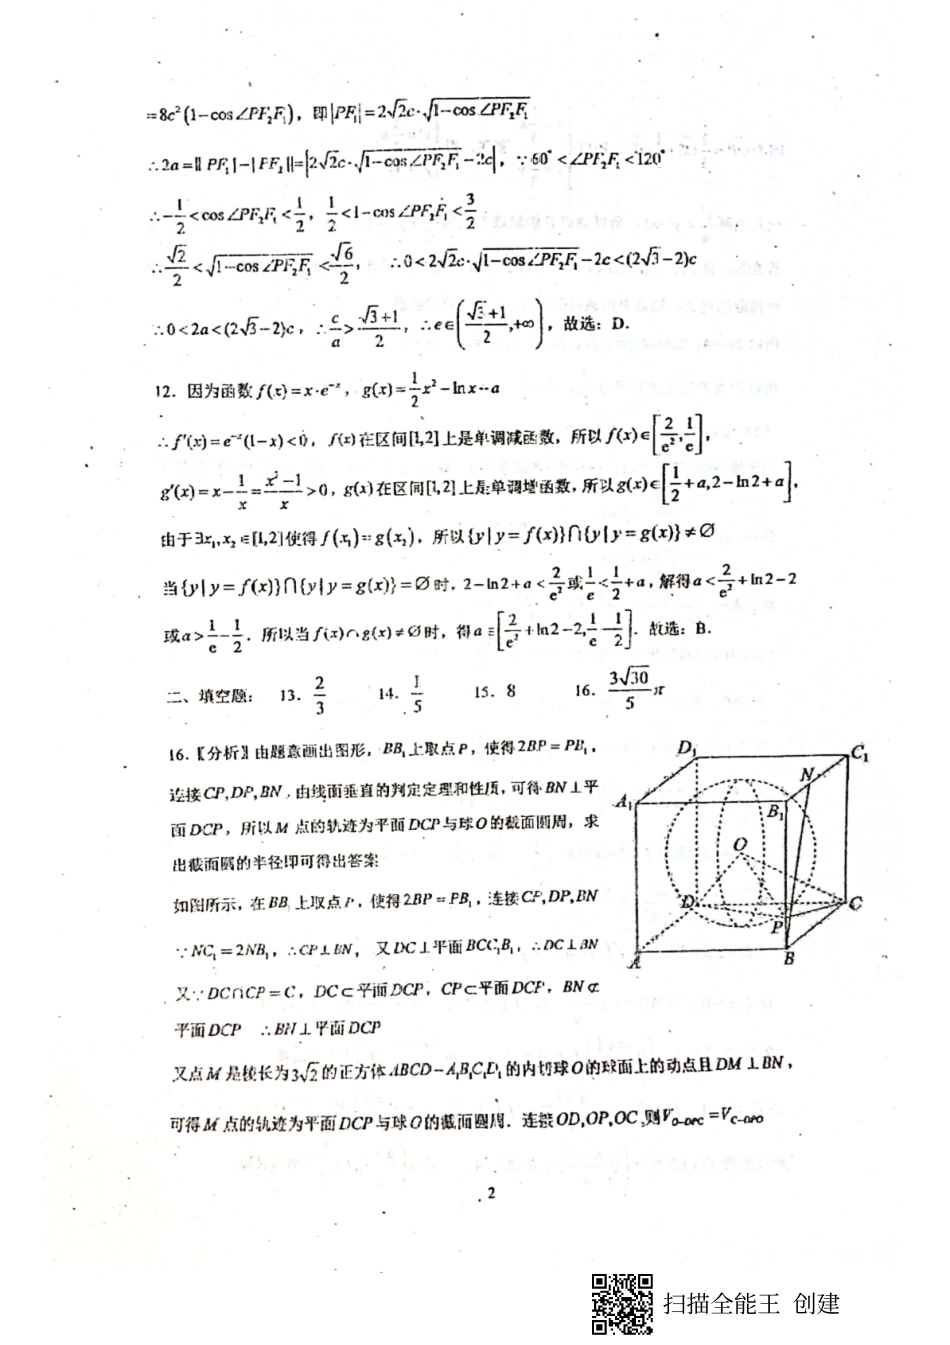 =8c²(1-cos∠PF₂F₁)，即|PF₁|=2√2c·√(1-cos∠PF₂F₁)
∴2a=||PF₁|-|PF₂||=|2√2c·√(1-cos∠PF₂F₁)-2c|，∵60°<∠PF₂F₁<120°
∴-1/2<cos∠PF₂F₁<1/2，1/2<1-cos∠PF₂F₁<3/2
∴√2/2<√(1-cos∠PF₂F₁)<√6/2，∴0<2√2c·√(1-cos∠PF₂F₁)-2c<(2√3-2)c
∴0<2a<(2√3-2)c，∴c/a>(√3+1)/2，∴e∈((√3+1)/2,+∞)，故选：D.
12. 因为函数f(x)=x·e⁻ˣ，g(x)=1/2x²-lnx+a
∴f'(x)=e⁻ˣ(1-x)<0，f(x)在区间[1,2]上是单调减函数，所以f(x)∈[2/e²,1/e]，
g'(x)=x-1/x=(x²-1)/x>0，g(x)在区间[1,2]上是单调增函数，所以g(x)∈[1/2+a,2-ln2+a]，
由于∃x₁,x₂∈[1,2]使得f(x₁)=g(x₂)，所以{y|y=f(x)}∩{y|y=g(x)}≠∅
当{y|y=f(x)}∩{y|y=g(x)}=∅时，2-ln2+a<2/e²或1/e<1/2+a，解得a<2/e²+ln2-2
或a>1/e-1/2．所以当f(x)∩g(x)≠∅时，得a∈[2/e²+ln2-2,1/e-1/2]．故选：B.
二、填空题： 13. 2/3 14. 1/5 15. 8 16. 3√30/5 π
16.【分析】由题意画出图形，BB₁上取点P，使得2BP=PB₁，
连接CP,DP,BN．由线面垂直的判定定理和性质，可得BN⊥平
面DCP，所以M点的轨迹为平面DCP与球O的截面圆周，求
出截面圆的半径即可得出答案
如图所示，在BB₁上取点P，使得2BP=PB₁，连接CP,DP,BN
∵NC₁=2NB₁，∴CP⊥BN，又DC⊥平面BCC₁B₁，∴DC⊥BN
又∵DC∩CP=C，DC⊂平面DCP，CP⊂平面DCP，BN⊄
平面DCP ∴BN⊥平面DCP
D₁
C₁
N
A₁
B₁
O
D
C
P
A
B
又点M是棱长为3√2的正方体ABCD-A₁B₁C₁D₁的内切球O的球面上的动点且DM⊥BN，
可得M点的轨迹为平面DCP与球O的截面圆周．连接OD,OP,OC,则V_O-DPC=V_C-DPO
2
扫描全能王 创建